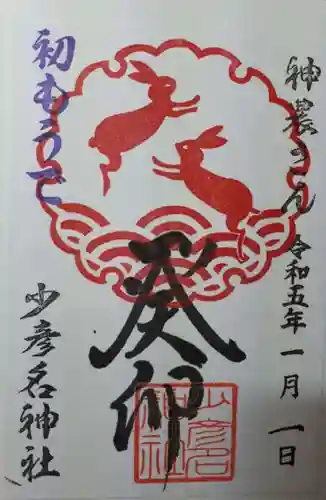 神農さん 令和五年一月一日
癸卯
初もうで
少彦名神社
少彦名神社